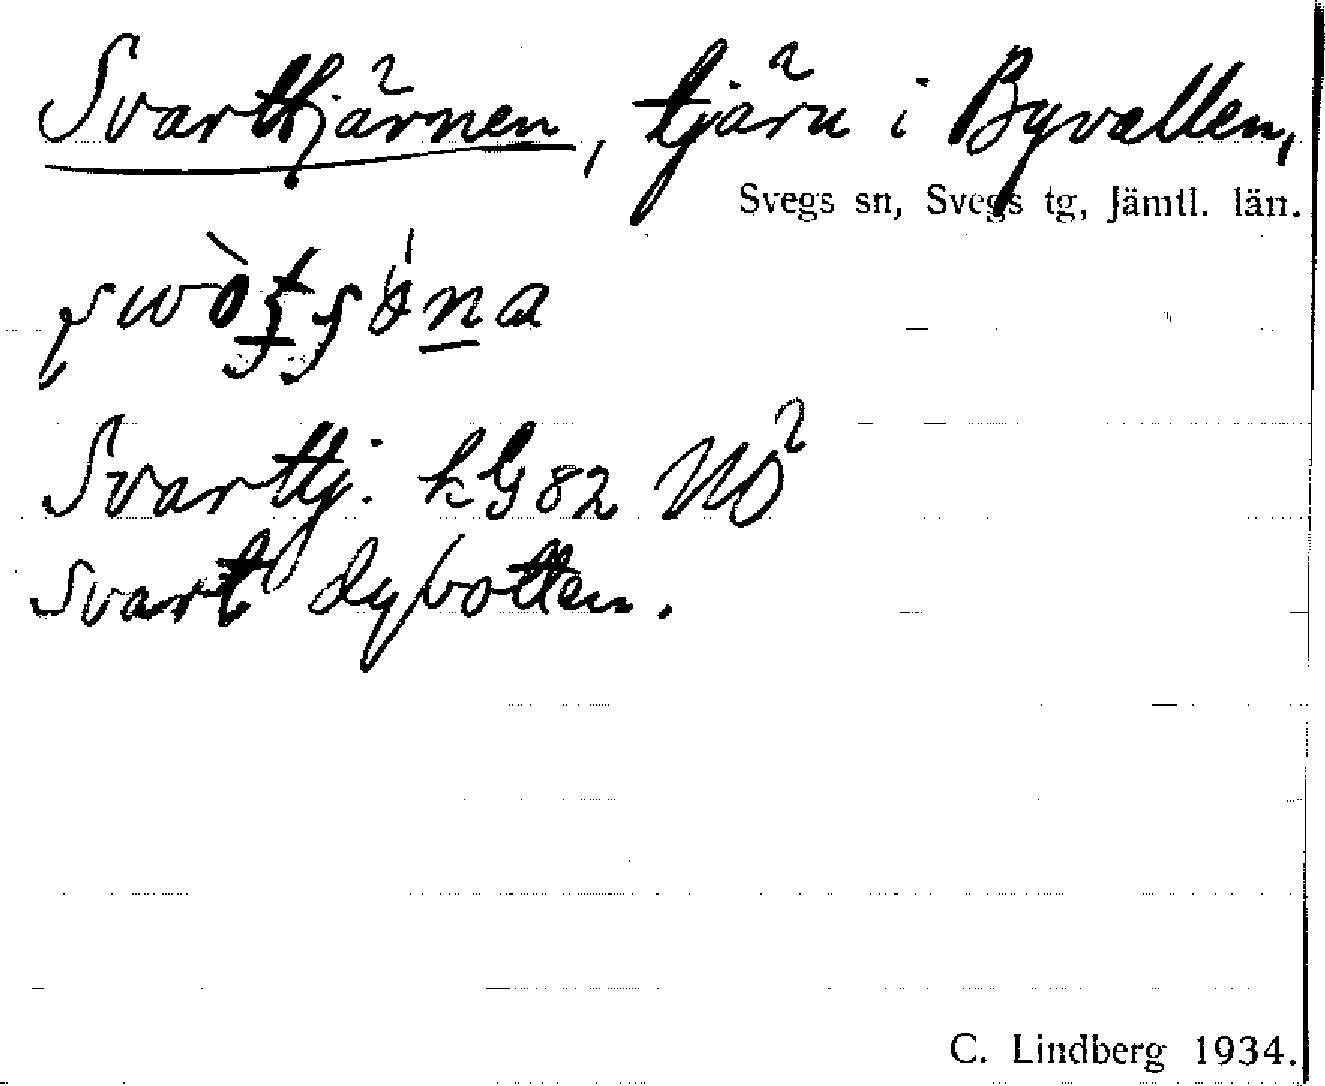 Svarttjärnen, tjärn i Byvallen,
Svegs sn, Svegs tg, Jämtl. län.
Svarttj. kG 82
svart dybotten.
C. Lindberg 1934.